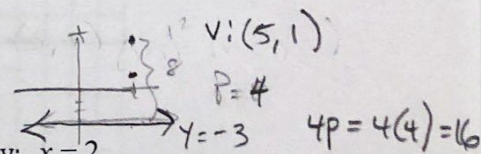 V: (5, 1)
8
P = 4
y = -3
4p = 4(4) = 16
x = 2